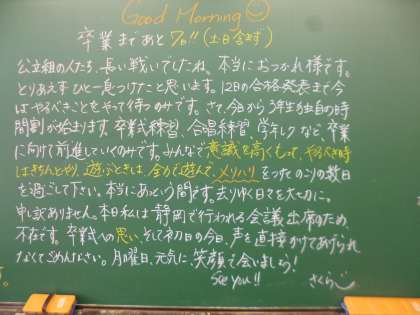 Good Morning
卒業まであと7日!! (土日含まず)
公立組の人たち、長い戦いでしたね。本当におつかれ様です。
とりあえずひと一息つけたと思います。12日の合格発表まで今
はやるべきことをやって待つのみです。さて、今日から3年生独自の時
間割が始まります。卒業式練習、合唱練習、学年レクなど、卒業
に向けて前進していくのみです。みんなで意識を高くもって、やるべき時
はきちんとやり、遊ぶときは、全力で遊んで、メリハリをつけてのこりの数日
を過ごして下さい。本当にあっという間です。去りゆく日々を大切に。
申し訳ありません。本日私は静岡で行われる会議出席のため、
不在です。卒業式への思い、そして初日の今日、声を直接かけてあげられ
なくてごめんなさい。月曜日、元気に、笑顔で会いましょう!
See you!! さくら